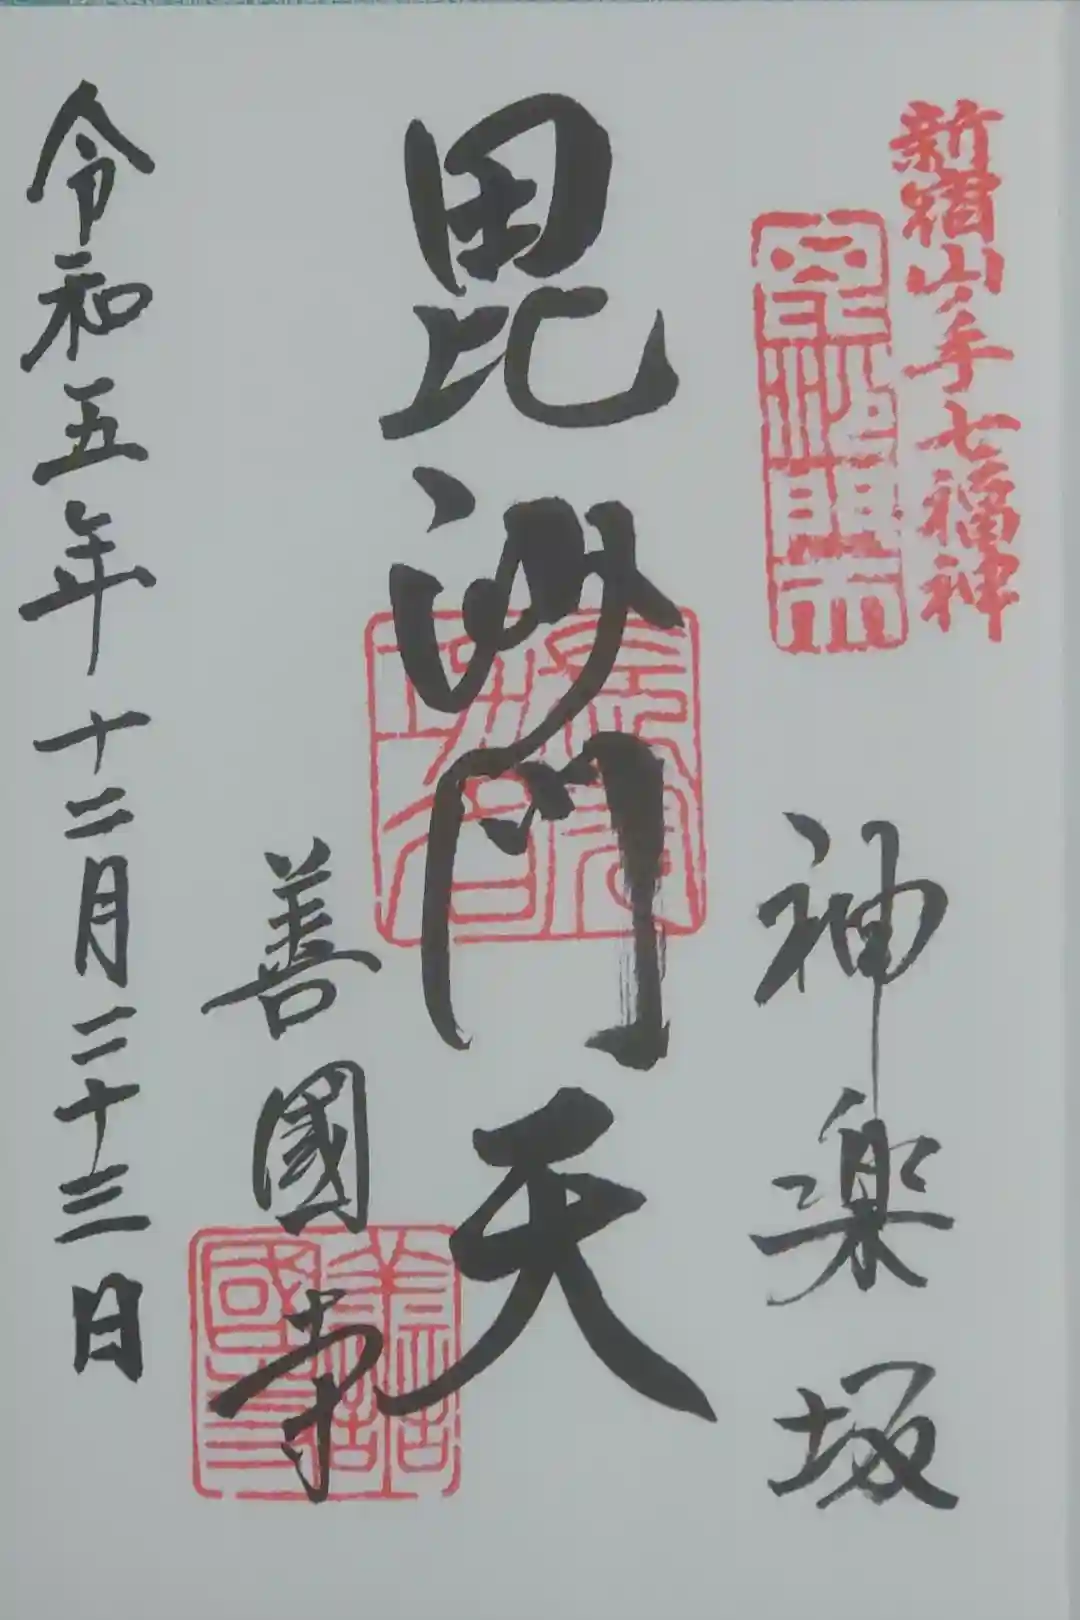 新宿山ノ手七福神
神楽坂
毘沙門天
善國寺
善國寺
令和五年十二月二十三日